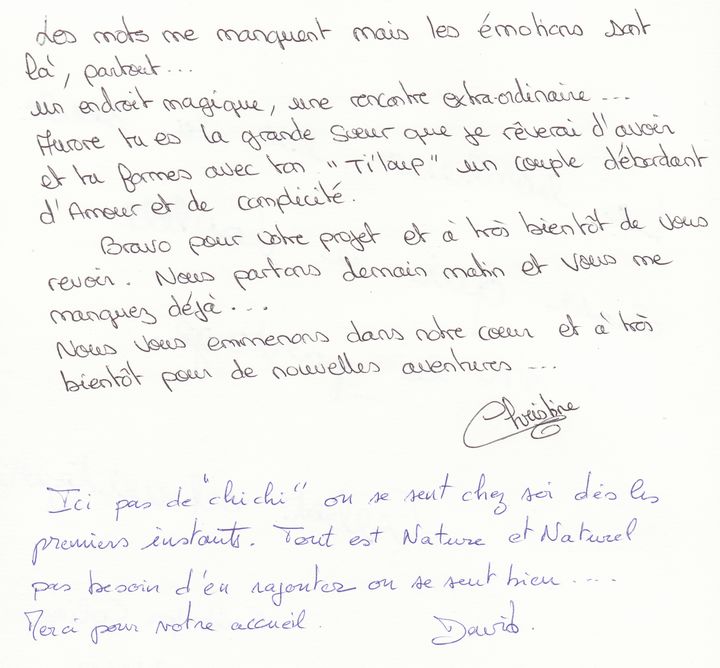 Les mots me manquent mais les émotions sont
là, partout...
un endroit magique, une rencontre extra-ordinaire...
Aurore tu es la grande Soeur que je rêverai d'avoir
et tu formes avec ton "Ti'loup" un couple débordant
d'Amour et de complicité.
Bravo pour votre projet et à très bientôt de vous
revoir. Nous partons demain matin et vous me
manquez déjà...
Nous vous emmenons dans notre coeur et à très
bientôt pour de nouvelles aventures...
Christine
Ici pas de "chichi" on se sent chez soi dès les
premiers instants. Tout est Nature et Naturel
pas besoin d'en rajouter on se sent bien....
Merci pour votre accueil. David.